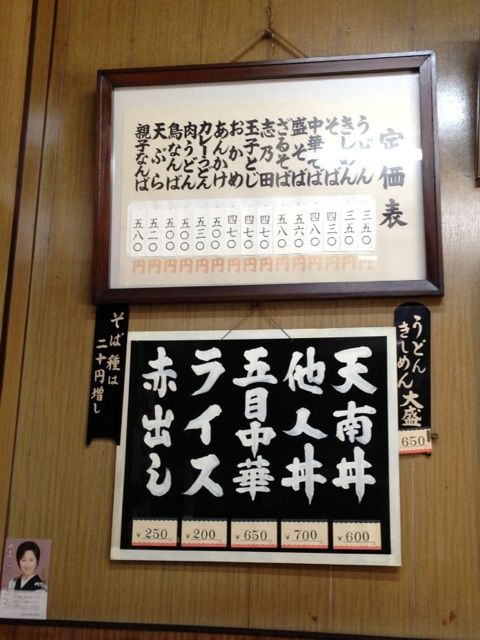 定価表
うどん 三五〇円
きしめん 三五〇円
そば 四三〇円
中華そば 四八〇円
盛そば 五六〇円
ざるそば 五八〇円
志乃田 四七〇円
玉子とじ 四七〇円
おかめ 四七〇円
あんかけ 五〇〇円
カレーうどん 五三〇円
肉うどん 五〇〇円
鳥なんば 五〇〇円
天ぷら 五二〇円
親子なんば 五八〇円
うどん
きしめん 大盛
650
天南丼 ¥600
他人丼 ¥700
五目中華 ¥650
ライス ¥200
赤出し ¥250
そば種は
二十円増し